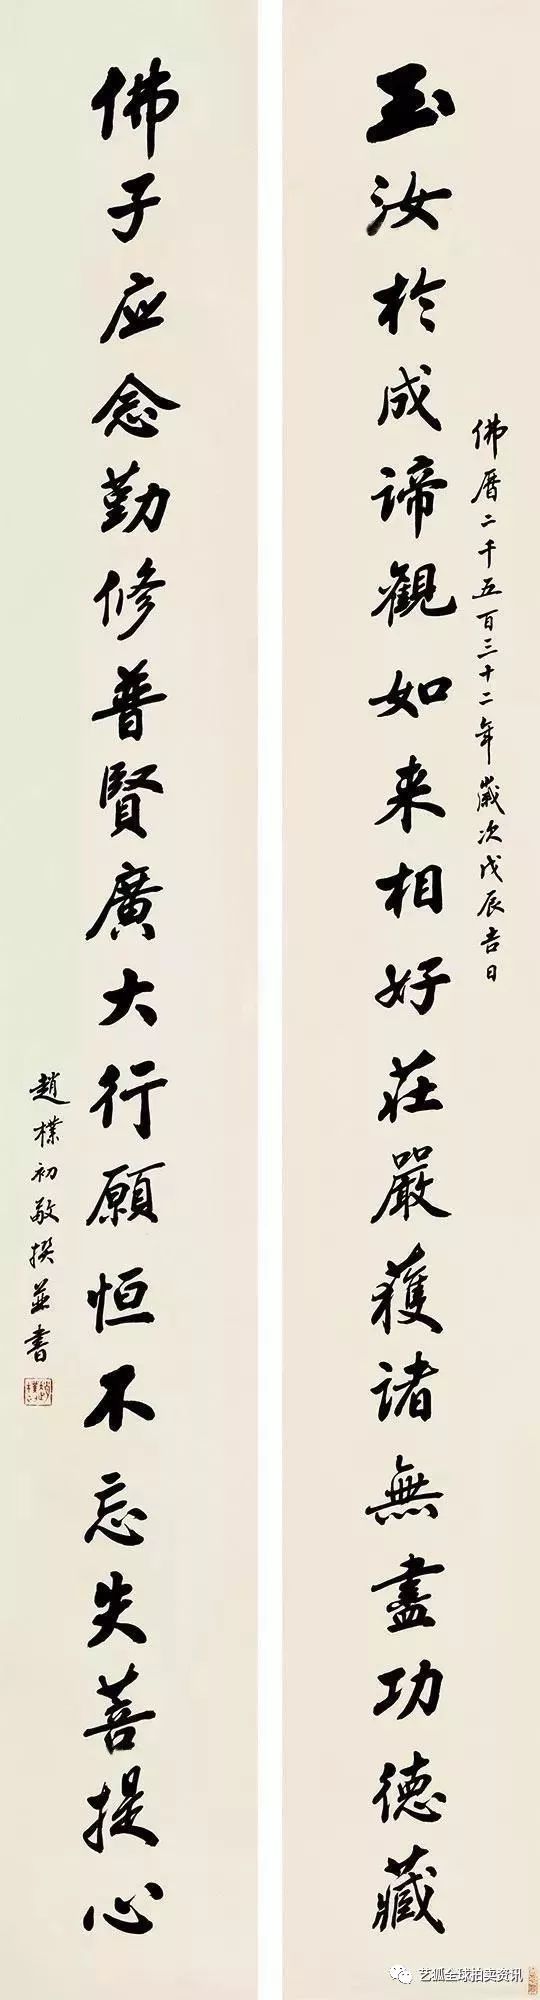 玉汝於成諦觀如来相好莊嚴獲諸無盡功德藏
佛曆二千五百三十二年歲次戊辰吉日
佛子应念勤修普賢廣大行願恒不忘失菩提心
趙樸初敬撰並書
艺狐全球拍卖资讯